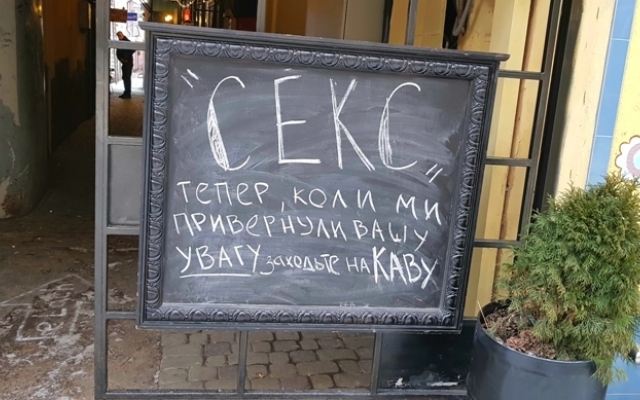 "СЕКС"
ТЕПЕР, КОЛИ МИ
ПРИВЕРНУЛИ ВАШУ
УВАГУ заходьте на КАВУ